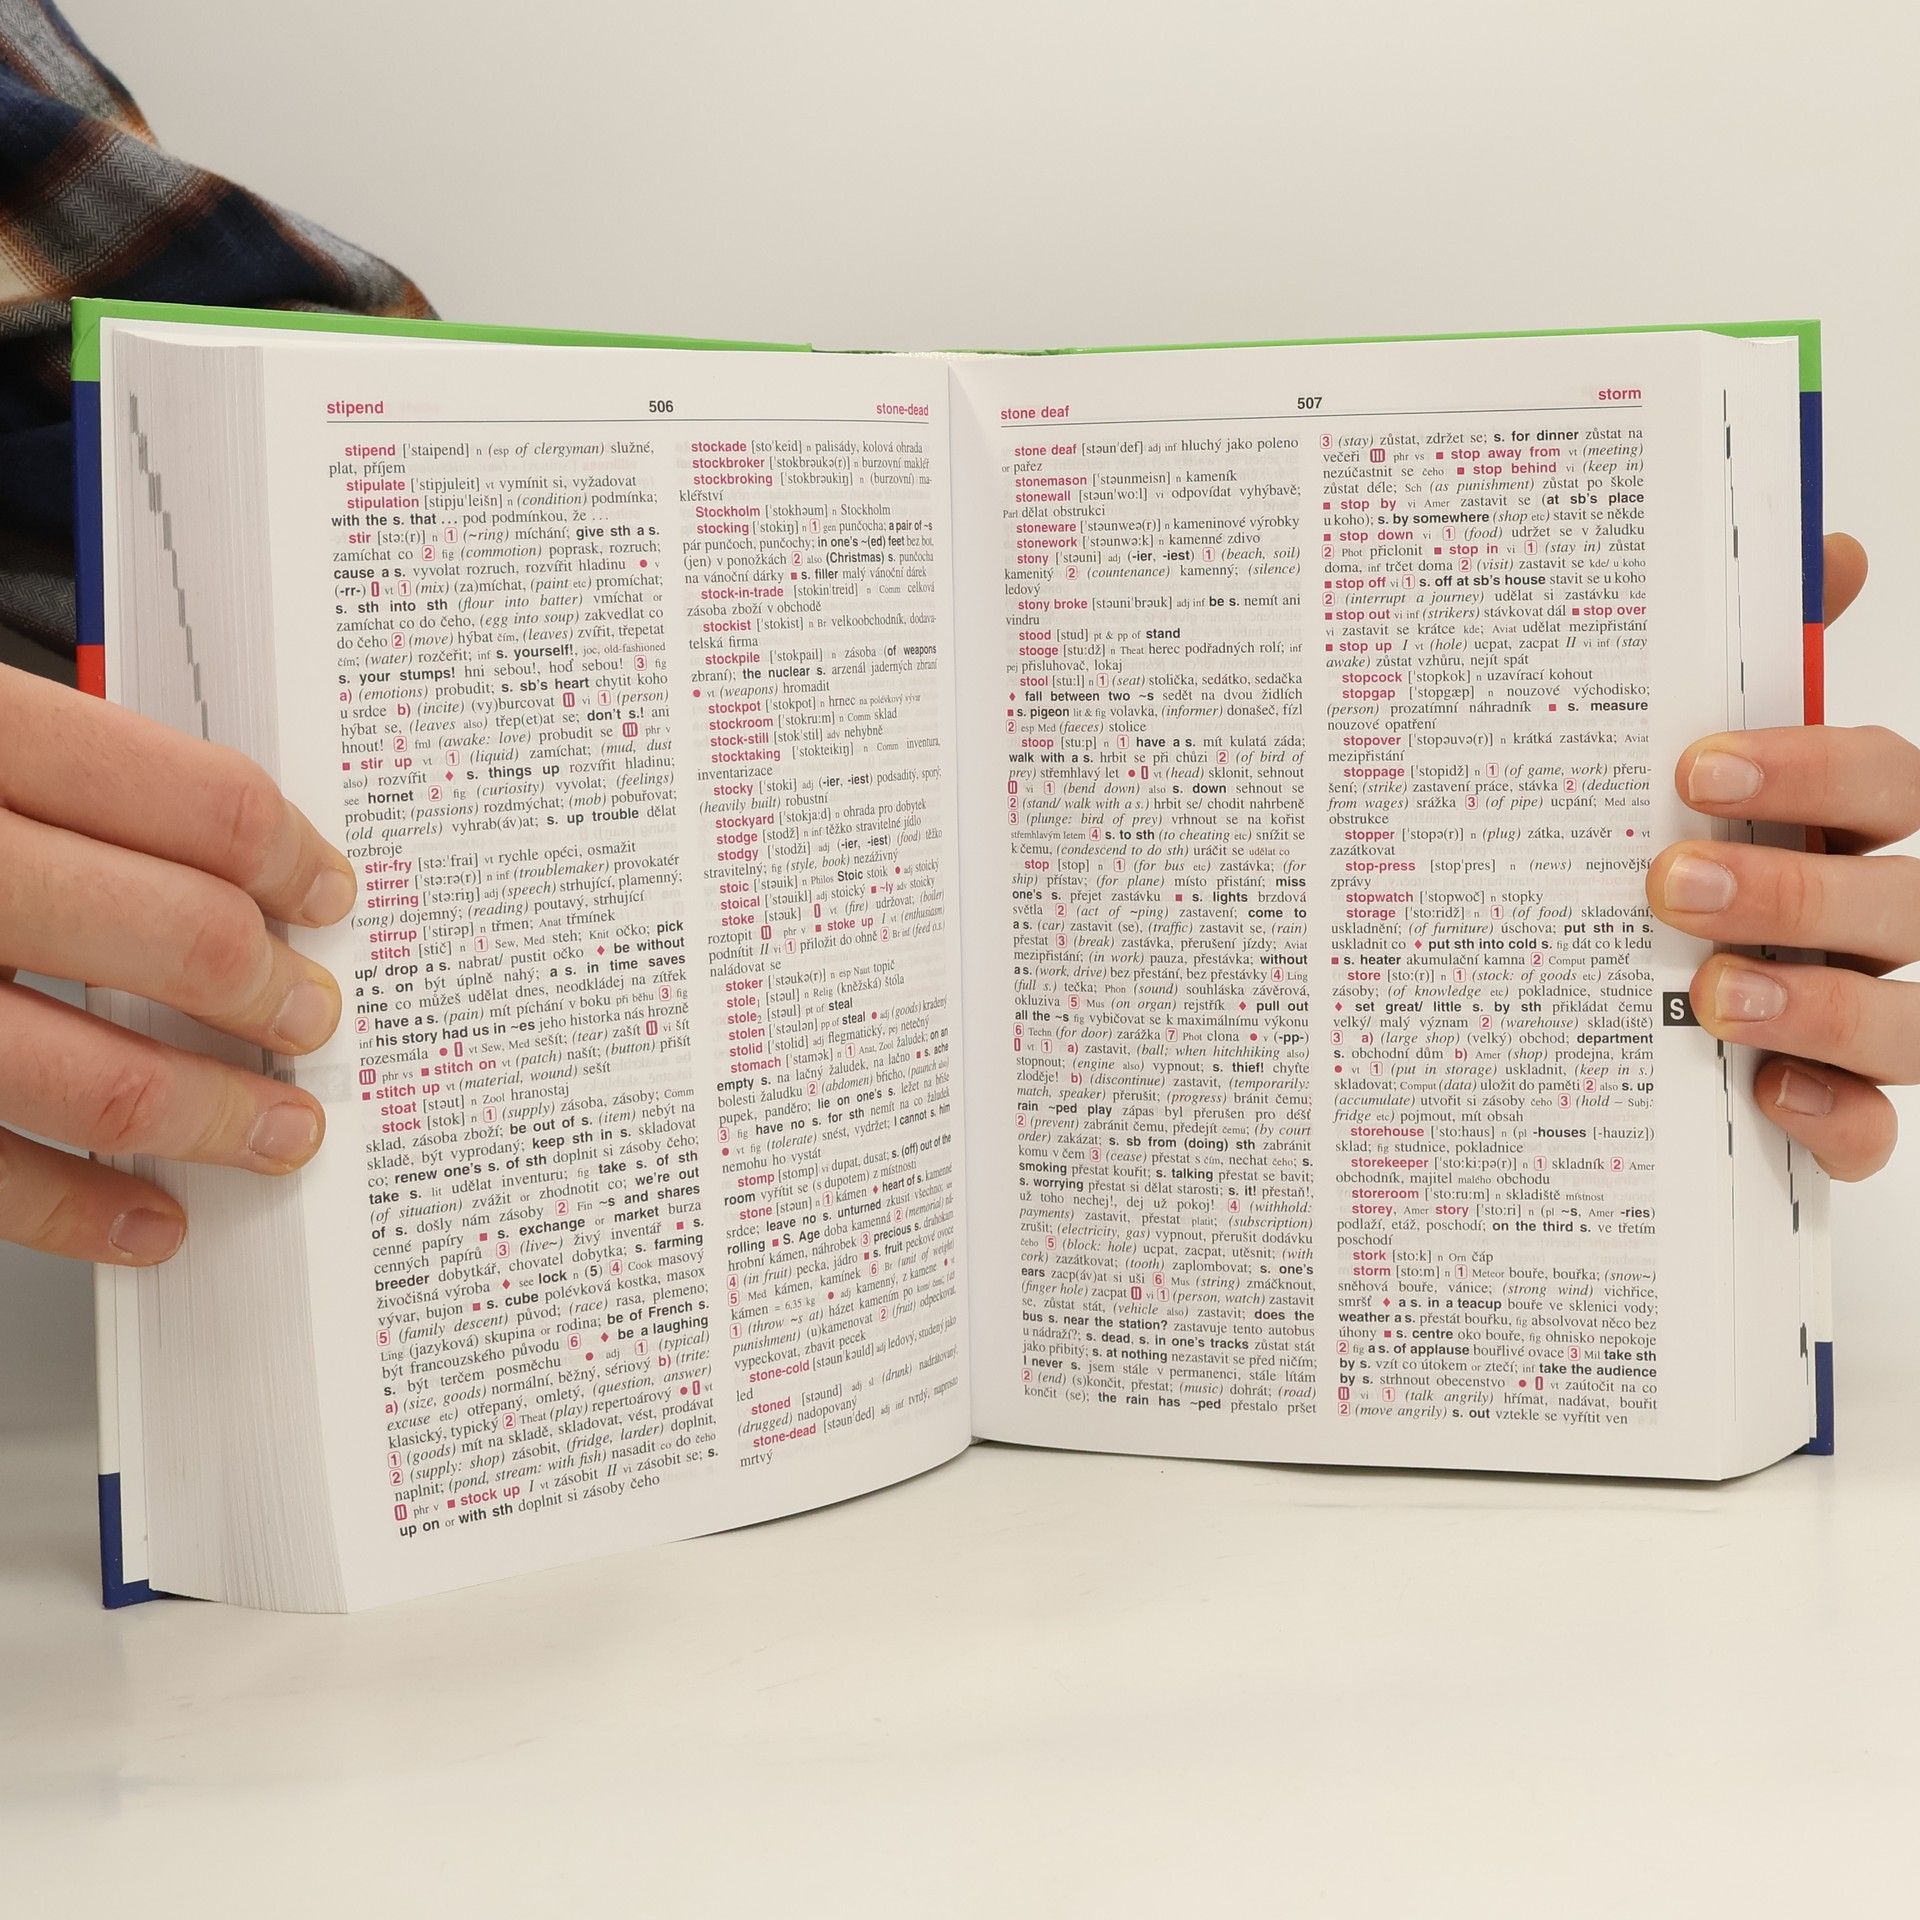 stipend 506 stone-dead
stipend ['staipend] n (esp of clergyman) služné,
plat, příjem
stipulate ['stipjuleit] vt vymínit si, vyžadovat
stipulation [stipju'leišn] n (condition) podmínka;
with the s. that ... pod podmínkou, že ...
stir [stə:(r)] n 1 (~ring) míchání; give sth a s.
zamíchat co 2 fig (commotion) poprask, rozruch;
cause a s. vyvolat rozruch, rozvířit hladinu ● v
(-rr-) I vt 1 (mix) (za)míchat, (paint etc) promíchat;
s. sth into sth (flour into batter) vmíchat or
zamíchat co do čeho, (egg into soup) zakvedlat co
do čeho 2 (move) hýbat čím, (leaves) zvířit, třepetat
čím; (water) rozčeřit; inf s. yourself!, joc, old-fashioned
s. your stumps! hni sebou!, hoď sebou! 3 fig
a) (emotions) probudit; s. sb's heart chytit koho
u srdce b) (incite) (vy)burcovat II vi 1 (person)
hýbat se, (leaves also) třep(et)at se; don't s.! ani
hnout! 2 fml (awake: love) probudit se III phr v
■ stir up vt 1 (liquid) zamíchat; (mud, dust
also) rozvířit ♦ s. things up rozvířit hladinu;
see hornet 2 fig (curiosity) vyvolat; (feelings)
probudit; (passions) rozdmýchat; (mob) pobuřovat;
(old quarrels) vyhrab(áv)at; s. up trouble dělat
rozbroje
stir-fry [stə:'frai] vt rychle opéci, osmažit
stirrer ['stə:rə(r)] n inf (troublemaker) provokatér
stirring ['stə:riŋ] adj (speech) strhující, plamenný;
(song) dojemný; (reading) poutavý, strhující
stirrup ['stirəp] n třmen; Anat třmínek
stitch [stič] n 1 Sew, Med steh; Knit očko; pick
up/ drop a s. nabrat/ pustit očko ♦ be without
a s. on být úplně nahý; a s. in time saves
nine co můžeš udělat dnes, neodkládej na zítřek
2 have a s. (pain) mít píchání v boku při běhu 3 fig
inf his story had us in ~es jeho historka nás hrozně
rozesmála ● I vt Sew, Med sešít; (tear) zašít II vi šít
III phr vs ■ stitch on vt (patch) našít; (button) přišít
■ stitch up vt (material, wound) sešít
stoat [stəut] n Zool hranostaj
stock [stok] n 1 (supply) zásoba, zásoby; Comm
sklad, zásoba zboží; be out of s. (item) nebýt na
skladě, být vyprodaný; keep sth in s. skladovat
co; renew one's s. of sth doplnit si zásoby čeho;
take s. lit udělat inventuru; fig take s. of sth
(of situation) zvážit or zhodnotit co; we're out
of s. došly nám zásoby 2 Fin ~s and shares
cenné papíry ■ s. exchange or market burza
cenných papírů 3 (live~) živý inventář ■ s.
breeder dobytkář, chovatel dobytka; s. farming
živočišná výroba ♦ see lock n (5) 4 Cook masový
vývar, bujon ■ s. cube polévková kostka, masox
5 (family descent) původ; (race) rasa, plemeno;
Ling (jazyková) skupina or rodina; be of French s.
být francouzského původu 6 ♦ be a laughing
s. být terčem posměchu ● adj 1 (typical)
a) (size, goods) normální, běžný, sériový b) (trite:
excuse etc) otřepaný, omletý, (question, answer)
klasický, typický 2 Theat (play) repertoárový ● I vt
1 (goods) mít na skladě, skladovat, vést, prodávat
2 (supply: shop) zásobit, (fridge, larder) doplnit,
naplnit; (pond, stream: with fish) nasadit co do čeho
II phr v ■ stock up I vt zásobit II vi zásobit se; s.
up on or with sth doplnit si zásoby čeho
stockade [sto'keid] n palisády, kolová ohrada
stockbroker ['stokbrəukə(r)] n burzovní makléř
stockbroking ['stokbrəukiŋ] n (burzovní) ma-
kléřství
Stockholm ['stokhəum] n Stockholm
stocking ['stokiŋ] n 1 gen punčocha; a pair of ~s
pár punčoch, punčochy; in one's ~(ed) feet bez bot,
(jen) v ponožkách 2 also (Christmas) s. punčocha
na vánoční dárky ■ s. filler malý vánoční dárek
stock-in-trade [stokin'treid] n Comm celková
zásoba zboží v obchodě
stockist ['stokist] n Br velkoobchodník, dodava-
telská firma
stockpile ['stokpail] n zásoba (of weapons
zbraní); the nuclear s. arzenál jaderných zbraní
● vt (weapons) hromadit
stockpot ['stokpot] n hrnec na polévkový vývar
stockroom ['stokru:m] n Comm sklad
stock-still [stok'stil] adv nehybně
stocktaking ['stokteikiŋ] n Comm inventura,
inventarizace
stocky ['stoki] adj (-ier, -iest) podsaditý, sporý;
(heavily built) robustní
stockyard ['stokja:d] n ohrada pro dobytek
stodge [stodž] n inf těžko stravitelné jídlo
stodgy ['stodži] adj (-ier, -iest) (food) těžko
stravitelný; fig (style, book) nezáživný
stoic ['stəuik] n Philos Stoic stoik ● adj stoický
stoical ['stəuikl] adj stoický ■ ~ly adv stoicky
stoke [stəuk] I vt (fire) udržovat; (boiler)
roztopit II phr v ■ stoke up I vt (enthusiasm)
podnítit II vi 1 přiložit do ohně 2 Br inf (feed o.s.)
naládovat se
stoker ['stəukə(r)] n esp Naut topič
stole₁ [stəul] n Relig (kněžská) štóla
stole₂ [stəul] pt of steal
stolen ['stəulən] pp of steal ● adj (goods) kradený
stolid ['stolid] adj flegmatický, pej netečný
stomach ['stamək] n 1 Anat, Zool žaludek; on an
empty s. na lačný žaludek, na lačno ■ s. ache
bolesti žaludku 2 (abdomen) břicho, (paunch also)
pupek, panděro; lie on one's s. ležet na břiše
3 fig have no s. for sth nemít na co žaludek
● vt fig (tolerate) snést, vydržet; I cannot s. him
nemohu ho vystát
stomp [stomp] vi dupat, dusat; s. (off) out of the
room vyřítit se (s dupotem) z místnosti
stone [stəun] n 1 kámen ♦ heart of s. kamenné
srdce; leave no s. unturned zkusit všechno; see
rolling ■ S. Age doba kamenná 2 (memorial) ná-
hrobní kámen, náhrobek 3 precious s. drahokam
4 (in fruit) pecka, jádro ■ s. fruit peckové ovoce
5 Med kámen, kamínek 6 Br (unit of weight)
kámen = 6,35 kg ● adj kamenný, z kamene ● vt
1 (throw ~s at) házet kamením po
punishment) (u)kamenovat 2 (fruit) odpeckovat,
vypeckovat, zbavit pecek
stone-cold [stəun'kəuld] adj ledový, studený jako
led
stoned [stəund] adj sl (drunk) nadrátovaný,
(drugged) nadopovaný
stone-dead [stəun'ded] adj inf tvrdý, naprosto
mrtvý
stone deaf 507 storm
stone deaf [stəun'def] adj inf hluchý jako poleno
or pařez
stonemason ['stəunmeisn] n kameník
stonewall [stəun'wo:l] vi odpovídat vyhýbavě;
Parl dělat obstrukci
stoneware ['stəunweə(r)] n kameninové výrobky
stonework ['stəunwə:k] n kamenné zdivo
stony ['stəuni] adj (-ier, -iest) 1 (beach, soil)
kamenitý 2 (countenance) kamenný; (silence)
ledový
stony broke [stəuni'brəuk] adj inf be s. nemít ani
vindru
stood [stud] pt & pp of stand
stooge [stu:dž] n Theat herec podřadných rolí; inf
pej přisluhovač, lokaj
stool [stu:l] n 1 (seat) stolička, sedátko, sedačka
♦ fall between two ~s sedět na dvou židlích
■ s. pigeon lit & fig volavka, (informer) donašeč, fízl
2 esp Med (faeces) stolice
stoop [stu:p] n 1 have a s. mít kulatá záda;
walk with a s. hrbit se při chůzi 2 (of bird of
prey) střemhlavý let ● I vt (head) sklonit, sehnout
II vi 1 (bend down) also s. down sehnout se
2 (stand/ walk with a s.) hrbit se/ chodit nahrbeně
3 (plunge: bird of prey) vrhnout se na kořist
střemhlavým letem 4 s. to sth (to cheating etc) snížit se
k čemu, (condescend to do sth) uráčit se udělat co
stop [stop] n 1 (for bus etc) zastávka; (for
ship) přístav; (for plane) místo přistání; miss
one's s. přejet zastávku ■ s. lights brzdová
světla 2 (act of ~ping) zastavení; come to
a s. (car) zastavit (se), (traffic) zastavit se, (rain)
přestat 3 (break) zastávka, přerušení jízdy; Aviat
mezipřistání; (in work) pauza, přestávka; without
a s. (work, drive) bez přestání, bez přestávky 4 Ling
(full s.) tečka; Phon (sound) souhláska závěrová,
okluziva 5 Mus (on organ) rejstřík ♦ pull out
all the ~s fig vybičovat se k maximálnímu výkonu
6 Techn (for door) zarážka 7 Phot clona ● v (-pp-)
I vt 1 a) zastavit, (ball; when hitchhiking also)
stopnout; (engine also) vypnout; s. thief! chyťte
zloděje! b) (discontinue) zastavit, (temporarily:
match, speaker) přerušit; (progress) bránit čemu;
rain ~ped play zápas byl přerušen pro déšť
2 (prevent) zabránit čemu, předejít čemu; (by court
order) zakázat; s. sb from (doing) sth zabránit
komu v čem 3 (cease) přestat s čím, nechat čeho; s.
smoking přestat kouřit; s. talking přestat se bavit;
s. worrying přestat si dělat starosti; s. it! přestaň!,
už toho nechej!, dej už pokoj! 4 (withhold:
payments) zastavit, přestat platit; (subscription)
zrušit; (electricity, gas) vypnout, přerušit dodávku
čeho 5 (block: hole) ucpat, zacpat, utěsnit; (with
cork) zazátkovat; (tooth) zaplombovat; s. one's
ears zacp(áv)at si uši 6 Mus (string) zmáčknout,
(finger hole) zacpat II vi 1 (person, watch) zastavit
se, zůstat stát, (vehicle also) zastavit; does the
bus s. near the station? zastavuje tento autobus
u nádraží?; s. dead, s. in one's tracks zůstat stát
jako přibitý; s. at nothing nezastavit se před ničím;
I never s. jsem stále v permanenci, stále lítám
2 (end) (s)končit, přestat; (music) dohrát; (road)
končit (se); the rain has ~ped přestalo pršet
3 (stay) zůstat, zdržet se; s. for dinner zůstat na
večeři III phr vs ■ stop away from vt (meeting)
nezúčastnit se čeho ■ stop behind vi (keep in)
zůstat déle; Sch (as punishment) zůstat po škole
■ stop by vi Amer zastavit se (at sb's place
u koho); s. by somewhere (shop etc) stavit se někde
■ stop down vi 1 (food) udržet se v žaludku
2 Phot přiclonit ■ stop in vi 1 (stay in) zůstat
doma, inf trčet doma 2 (visit) zastavit se kde/ u koho
■ stop off vi 1 s. off at sb's house stavit se u koho
2 (interrupt a journey) udělat si zastávku kde
■ stop out vi inf (strikers) stávkovat dál ■ stop over
vi zastavit se krátce kde; Aviat udělat mezipřistání
■ stop up I vt (hole) ucpat, zacpat II vi inf (stay
awake) zůstat vzhůru, nejít spát
stopcock ['stopkok] n uzavírací kohout
stopgap ['stopgæp] n nouzové východisko;
(person) prozatímní náhradník ■ s. measure
nouzové opatření
stopover ['stopəuvə(r)] n krátká zastávka; Aviat
mezipřistání
stoppage ['stopidž] n 1 (of game, work) přeru-
šení; (strike) zastavení práce, stávka 2 (deduction
from wages) srážka 3 (of pipe) ucpání; Med also
obstrukce
stopper ['stopə(r)] n (plug) zátka, uzávěr ● vt
zazátkovat
stop-press [stop'pres] n (news) nejnovější
zprávy
stopwatch ['stopwoč] n stopky
storage ['sto:ridž] n 1 (of food) skladování;
uskladnění; (of furniture) úschova; put sth in s.
uskladnit co ♦ put sth into cold s. fig dát co k ledu
■ s. heater akumulační kamna 2 Comput paměť
store [sto:(r)] n 1 (stock: of goods etc) zásoba,
zásoby; (of knowledge etc) pokladnice, studnice
♦ set great/ little s. by sth přikládat čemu
velký/ malý význam 2 (warehouse) sklad(iště)
3 a) (large shop) (velký) obchod; department
s. obchodní dům b) Amer (shop) prodejna, krám
● vt 1 (put in storage) uskladnit, (keep in s.)
skladovat; Comput (data) uložit do paměti 2 also s. up
(accumulate) utvořit si zásoby čeho 3 (hold – Subj:
fridge etc) pojmout, mít obsah
storehouse ['sto:haus] n (pl -houses [-hauziz])
sklad; fig studnice, pokladnice
storekeeper ['sto:ki:pə(r)] n 1 skladník 2 Amer
obchodník, majitel malého obchodu
storeroom ['sto:ru:m] n skladiště místnost
storey, Amer story ['sto:ri] n (pl ~s, Amer -ries)
podlaží, etáž, poschodí; on the third s. ve třetím
poschodí
stork [sto:k] n Orn čáp
storm [sto:m] n 1 Meteor bouře, bouřka; (snow~)
sněhová bouře, vánice; (strong wind) vichřice,
smršť ♦ a s. in a teacup bouře ve sklenici vody;
weather a s. přestát bouřku, fig absolvovat něco bez
úhony ■ s. centre oko bouře, fig ohnisko nepokoje
2 fig a s. of applause bouřlivé ovace 3 Mil take sth
by s. vzít co útokem or ztečí; inf take the audience
by s. strhnout obecenstvo ● I vt zaútočit na co
II vi 1 (talk angrily) hřímat, nadávat, bouřit
2 (move angrily) s. out vztekle se vyřítit ven
S